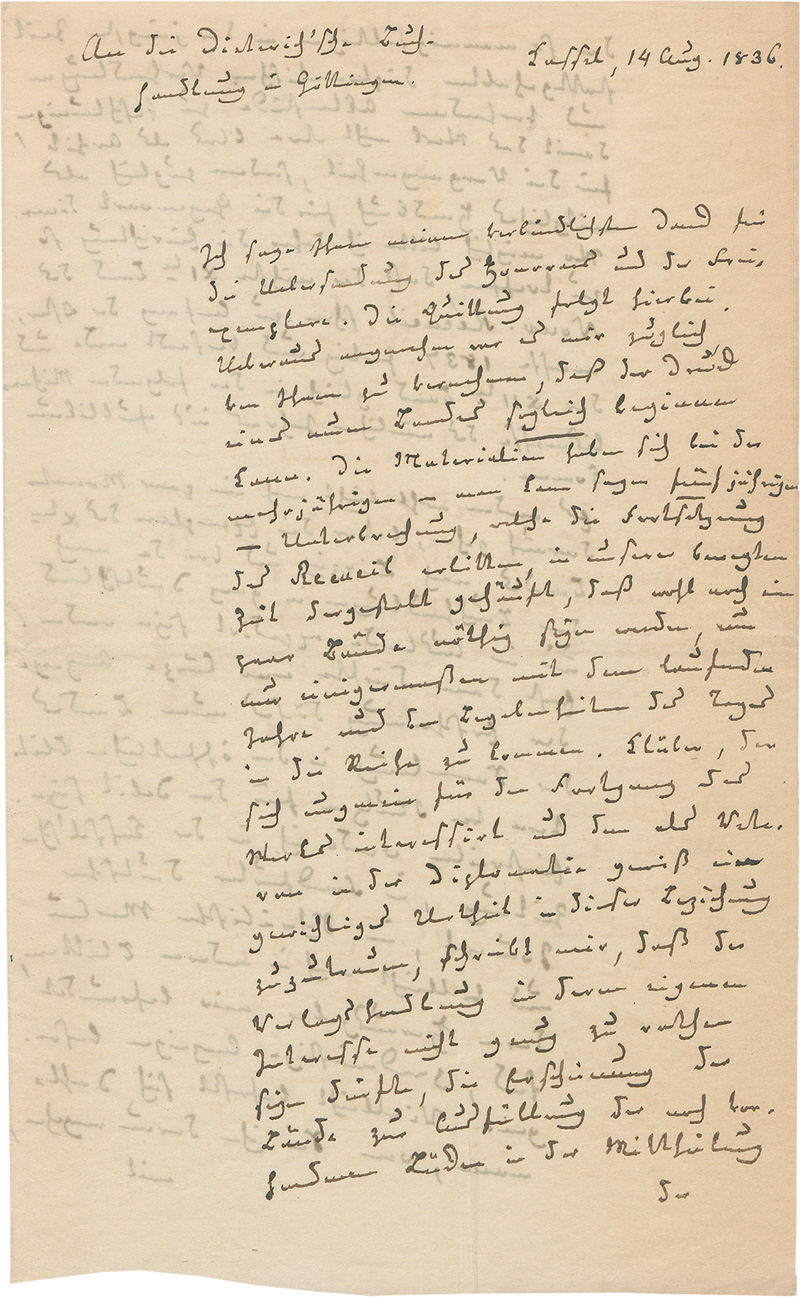 An die Dieterich'sche Buch-
handlung in Göttingen.
Cassel, 14 Aug. 1836.
Ich sage Ihnen meinen verbindlichsten Dank für
die Uebersendung des Honorars und der Frei-
exemplare. Die Quittung folgt hierbei.
Ueberaus angenehm war es mir zugleich
von Ihnen zu vernehmen, daß der Druck
eines neuen Bandes sogleich beginnen
kann. Die Materialien haben sich bei der
mehrjährigen – man kann sagen fünfjährigen
– Unterbrechung, welche die Fortsetzung
des Recueil erlitten, in unserer bewegten
Zeit dergestalt gehäuft, daß wohl noch ein
paar Bände nöthig seyn werden, um
nur einigermaßen mit dem laufenden
Jahre und den Begebenheiten des Tages
in die Reihe zu kommen. Klüber, der
sich ungemein für den Fortgang des
Werkes interessirt und dem als Vete-
ran in der Diplomatie gewiß ein
gewichtiges Urtheil in dieser Beziehung
zuzutrauen, schreibt mir, daß der
Verlagshandlung in deren eigenen
Interesse nicht genug zu rathen
seyn dürfte, die Erscheinung der
Bände zur Ausfüllung der noch vor-
handenen Lücken in der Mittheilung
der